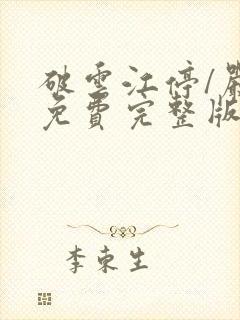 破雲江停/嚴
免費完整版
李東生